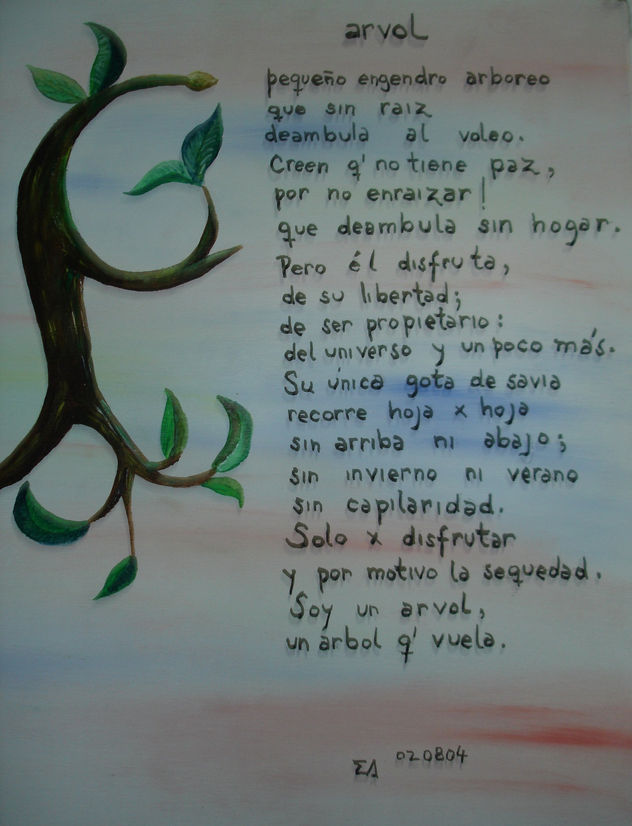 arvol
pequeño engendro arboreo
que sin raiz
deambula al voleo.
Creen q' no tiene paz,
por no enraizar!
que deambula sin hogar.
Pero él disfruta,
de su libertad;
de ser propietario:
del universo y un poco más.
Su única gota de savia
recorre hoja x hoja
sin arriba ni abajo;
sin invierno ni verano
sin capilaridad.
Solo x disfrutar
y por motivo la sequedad.
Soy un arvol,
un árbol q' vuela.
ΣΔ 020804